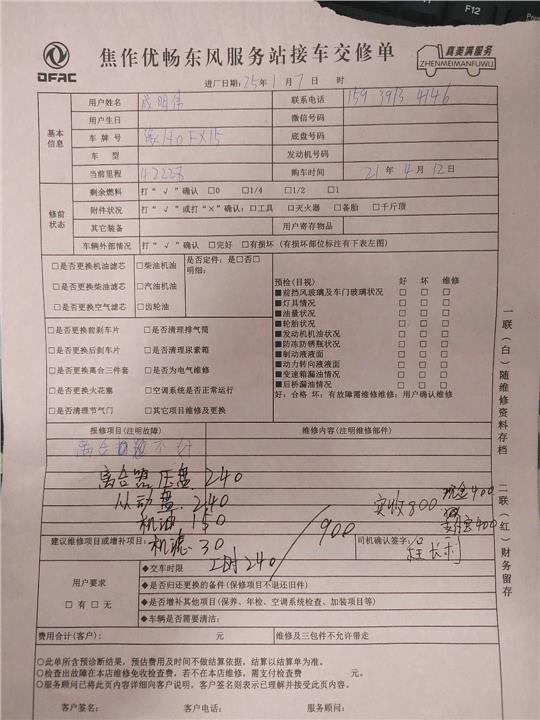 DFAC
焦作优畅东风服务站接车交修单
真美满服务
ZHENMEIMANFUWU
进厂日期: 25年 1月 7日 时
基本信息
用户姓名
联系电话 159 3913 4146
用户生日
微信号码
车牌号 豫H0FX15
底盘号码
车 型
发动机号码
当前里程 42228
购车时间 21 年 4 月 12 日
修前状态
剩余燃料 打“√”确认 □0 □1/4 □1/2 □1
附件状况 打“√”或打“×”确认:□工具 □灭火器 □备胎 □千斤顶
其它装备
用户寄存物品
车辆外部情况 打“√”确认 □完好 □有损坏 (有损坏部位标注有下表左图)
□是否更换机油滤芯 □柴油机油
□是否更换柴油滤芯 □汽油机油
□是否更换空气滤芯 □齿轮油
是否定件: 是□否□
明细:
□是否更换前刹车片 □是否清理排气筒
□是否更换后刹车片 □是否清理尿素箱
□是否更换离合三件套 □是否为电气维修
□是否更换火花塞 □空调系统是否正常运行
□是否清理节气门 □其它项目维修及更换
预检(目视) 好 坏 维修
■前挡风玻璃及车门玻璃状况 □ □ □
■灯具情况 □ □ □
■油量状况 □ □ □
■轮胎状况 □ □ □
■发动机机油状况 □ □ □
■防冻防锈瓶状况 □ □ □
■制动液液面 □ □ □
■动力转向液液面 □ □ □
■变速箱漏油情况 □ □ □
■后桥漏油情况 □ □ □
好: 合格 坏: 有故障需维修维修: 用户确认维修
报修项目(注明故障)
维修内容(注明维修部件)
离合
离合器压盘 240
从动盘 240
机油 150
机滤 30
工时 240
900
实收800 现金400
400
建议维修项目或增补项目:
司机确认签字:
用户要求
□ 有 □ 无
◆交车时限
◆是否归还更换的备件(保修项目不退还旧件)
◆是否增补其他项目(保养、年检、空调系统检查、加装项目等)
◆车辆是否需要清洁:
费用合计(客户): 元
维修及三包件不允许带走
○此单所含预诊断结果,预估费用及时间不做结算依据,结算以结算单为准。
○检查出故障在本店维修免收检查费,若不在本店维修,需支付检查费 元。
○服务顾问已将此页内容详细向客户说明,客户签名则表示已理解并接受此页内容。
客户签名: 客户电话: 服务顾问:
一联(白)随维修资料存档
二联(红)财务留存
F12